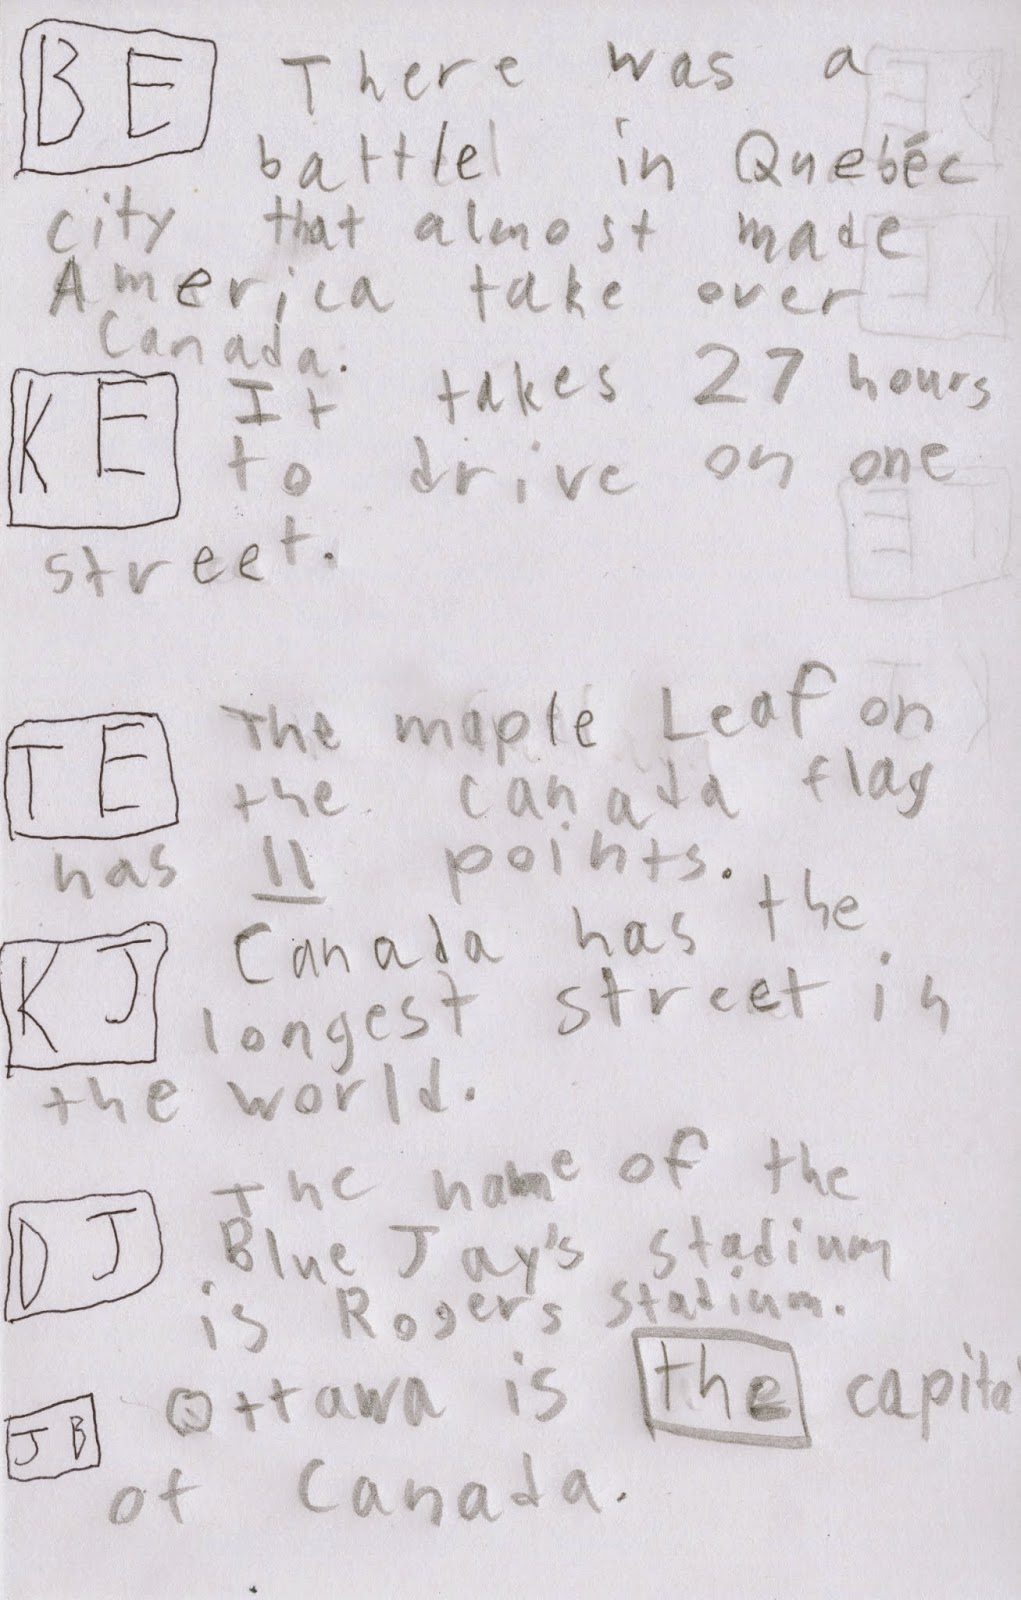 BE There was a
battle in Quebéc
city that almost made
America take over
Canada.
KE It takes 27 hours
to drive on one
street.
TE The maple Leaf on
the Canada flag
has 11 points.
KJ Canada has the
longest street in
the world.
DJ The name of the
Blue Jay's stadium
is Rogers stadium.
JB Ottawa is the capita
of Canada.